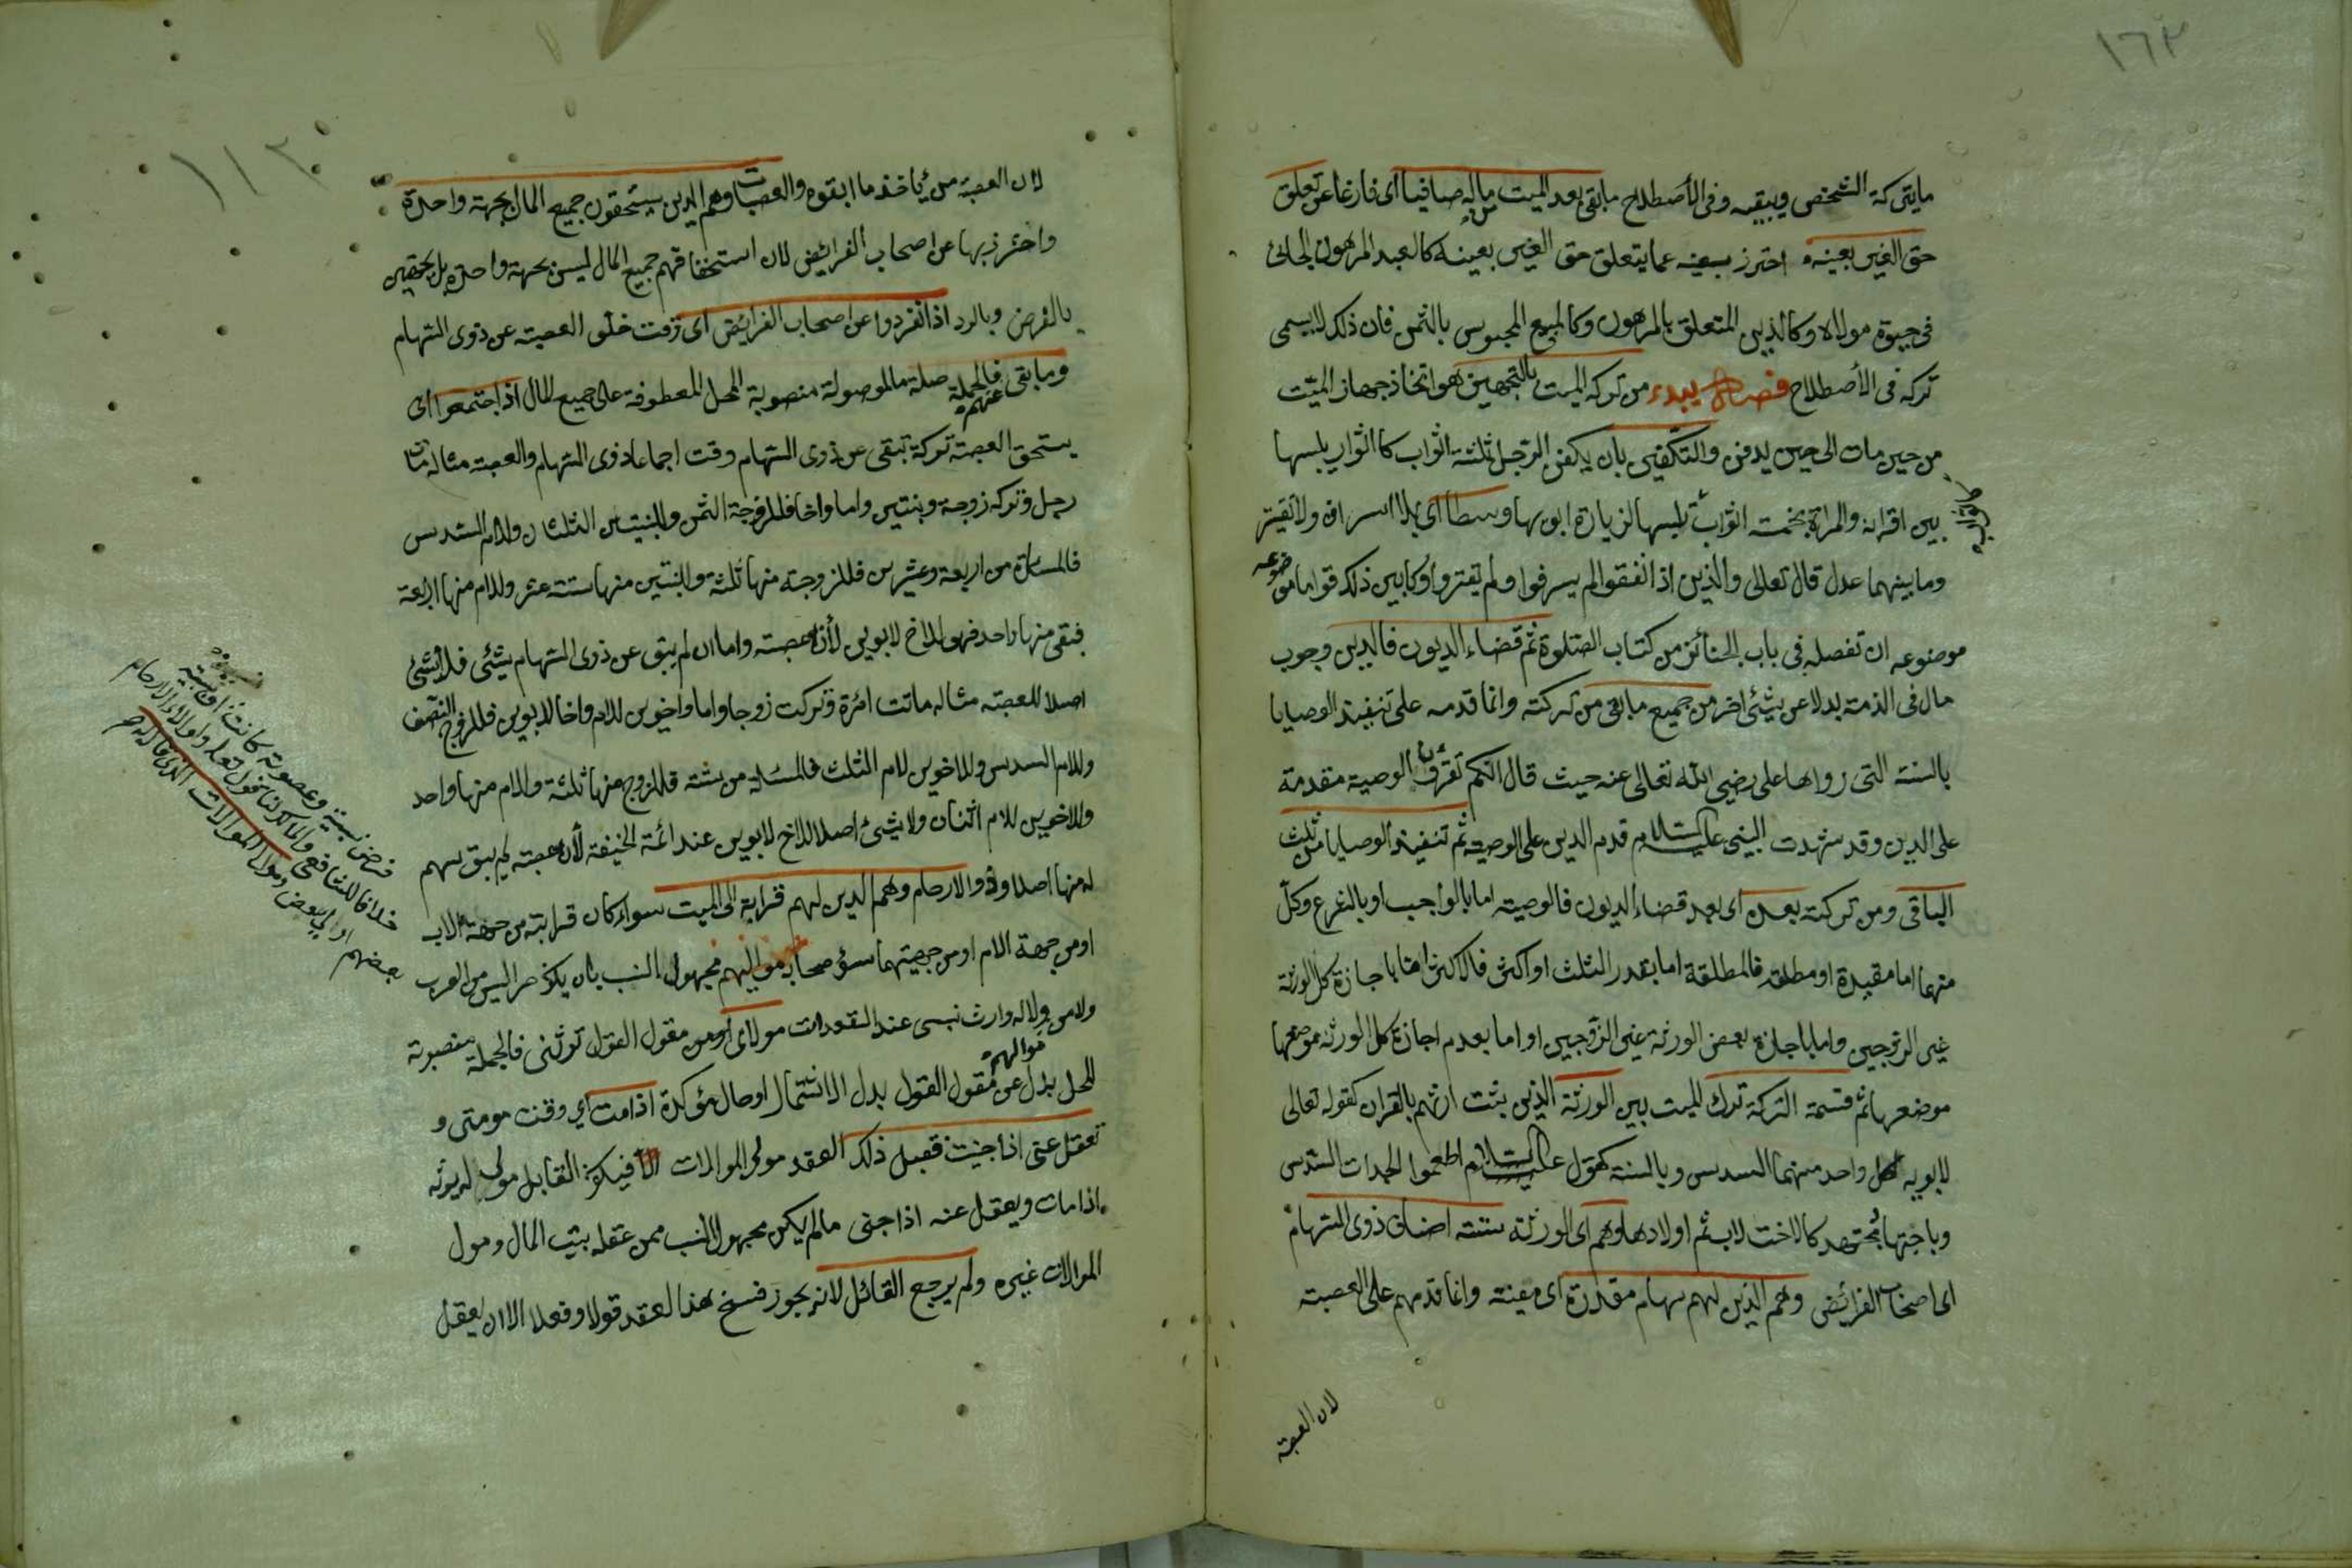 ١٦٣
مايتركه الشخص ويبقيه وفى الأصطلاح مابقى بعد الميت من ماله صافيا اى فارغا عن تعلق
حق الغير بعينه احترز بعينه عما يتعلق حق الغير بعينه كالعبد المرهون الجانى
فى حيوة مولاه وكالدين المتعلق بالمرهون وكالمبيع المحبوس بالثمن فان ذلك لا يسمى
تركه فى الأصطلاح فصل يبدء من تركه الميت بالتجهيز هو اتخاذ جهاز الميّت
من حين مات الى حين يدفن والتكفين بان يكفن الرّجل ثلثة اثواب كا اثواب يلبسها
بين اقرانه والمرأة بخمت اثواب تلبسها لزيارة ابويها وسطا اى بلا اسراف ولا تقيتر
وما بينهما عدل قال تعالى والذين اذا انفقوا لم يسرفوا ولم يقتروا وكا بين ذلك قواما موضوعه
موضوعه ان تفصله فى باب الجنائز من كتاب الصّلوة ثم قضاء الديون فالدين وجوب
مال فى الذمة بدلا عن شئى اخر من جميع مابقى من تركته وانما قدمه على تنفيذ الوصايا
بالسنة التى رواها على رضى الله تعالى عنه حيث قال انكم تقرؤن الوصية مقدمة
على الدين وقد شهدت النبى عليه السلام قدم الدين على الوصية ثم تنفيذ الوصايا من ثلث
الباقى ومن تركته بعده اى بعد قضاء الديون فالوصية اما بالواجب او بالتبرع وكل
منهما اما مقيدة او مطلقة فالمطلقة اما بقدر الثلث او اكثر فالاكثر اما باجازة كل الورثة
غير الزوجين واما باجازة بعض الورثة غير الزّوجين او اما بعدم اجازة كل الورثة موضعها
موضعها ثم قسمة التركة ترك الميت بين الورثة الذين يثبت ارثهم بالقران كقوله تعالى
لابويه لكل واحد منهما السدس وبالسنة كقول عليه السلام اطعموا الجدات السّدس
وباجتها مجتهد كالاخت لاب ثم اولادها وهم اى الورثة ستة اصناف ذوى السّهام
اى اصحاب الفرائض وهم الذين لهم سهام مقدرة اى معينة وانما قدمهم على العصبة
لان العصبة
١١٣
لان العصبة من ئياخذ ما ابقوه والعصبات وهم الذين يستحقون جميع المال بجهة واحدة
واحترز بها عن اصحاب الفرائض لان استحقاقهم جميع المال ليس بجهة واحدة بل بجهتين
بالفرض وبالرد اذا انفردوا عن اصحاب الفرايض اى وقت خلو العصبة عن ذوى السّهام
وما بقى عنهم فالجملة صلة ما الموصولة منصوبة المحل المعطوفة على جميع المال اذا اجتمعوا اى
يستحق العصبة تركة تبقى عن ذوى السّهام وقت اجماعا ذوى السّهام والعصبة مثاله مات
رجل وترك زوجة وبنتين واما واخا فللزوجة الثمن وللبنتين الثلثان وللام السّدس
فالمسئلة من اربعة وعشرين فللزوجة منها ثلثة وللبنتين منها ستة عشر وللام منها اربعة
فبقى منها واحد فهو للاخ لابوين لأنه عصبته واما ان لم يبق عن ذوى السّهام شئى فلا شئى
اصلا للعصبة مثاله ماتت امرة وتركت زوجا واما واخوين للام واخا لابوين فللزوج النصف
وللام السدس وللاخوين لام الثلث فالمسئلة من ستة فللزوج منها ثلثة وللام منها واحد
وللاخوين للام اثنان ولا شئ اصلا للاخ لابوين عند ائمة الحنيفة لأنه عصبة لم يبق سهم
له منها اصلا وذو الارحام وهم الذين لهم قرابة الى الميت سواء كان قرابته من جهة الاب
او من جهة الام او من جهيتهما مواليهم مجهول النسب بان يكون حرا ليس من العرب
ولا من ولا له وارث نسبى عند التعدات مولاى او من مقول القول ترثنى فالجملة منصوبة
المحل بدل عن مقول القول بدل الاشتمال او حال مؤكدة اذا مت اى وقت موتى و
تعقل عنى اذا جنيت فقبل ذلك العقد مولى الموالات القابل مولى له يرثه
اذا مات ويعقل عنه اذا جنى مالم يكن مجهول النسب ممن عقله بيت المال ومول
الموالات غيره ولم يرجع القائل لانه يجوز فسخ هذا العقد قولا وفعلا الا ان يعقل
فرض نسبية وعصوبة كانت اوسببية
خلافا للشافعى والمالك لنا قول تعالى واولاء الارحام
بعضهم اولى ببعض ومولى الموالات الذى قال له